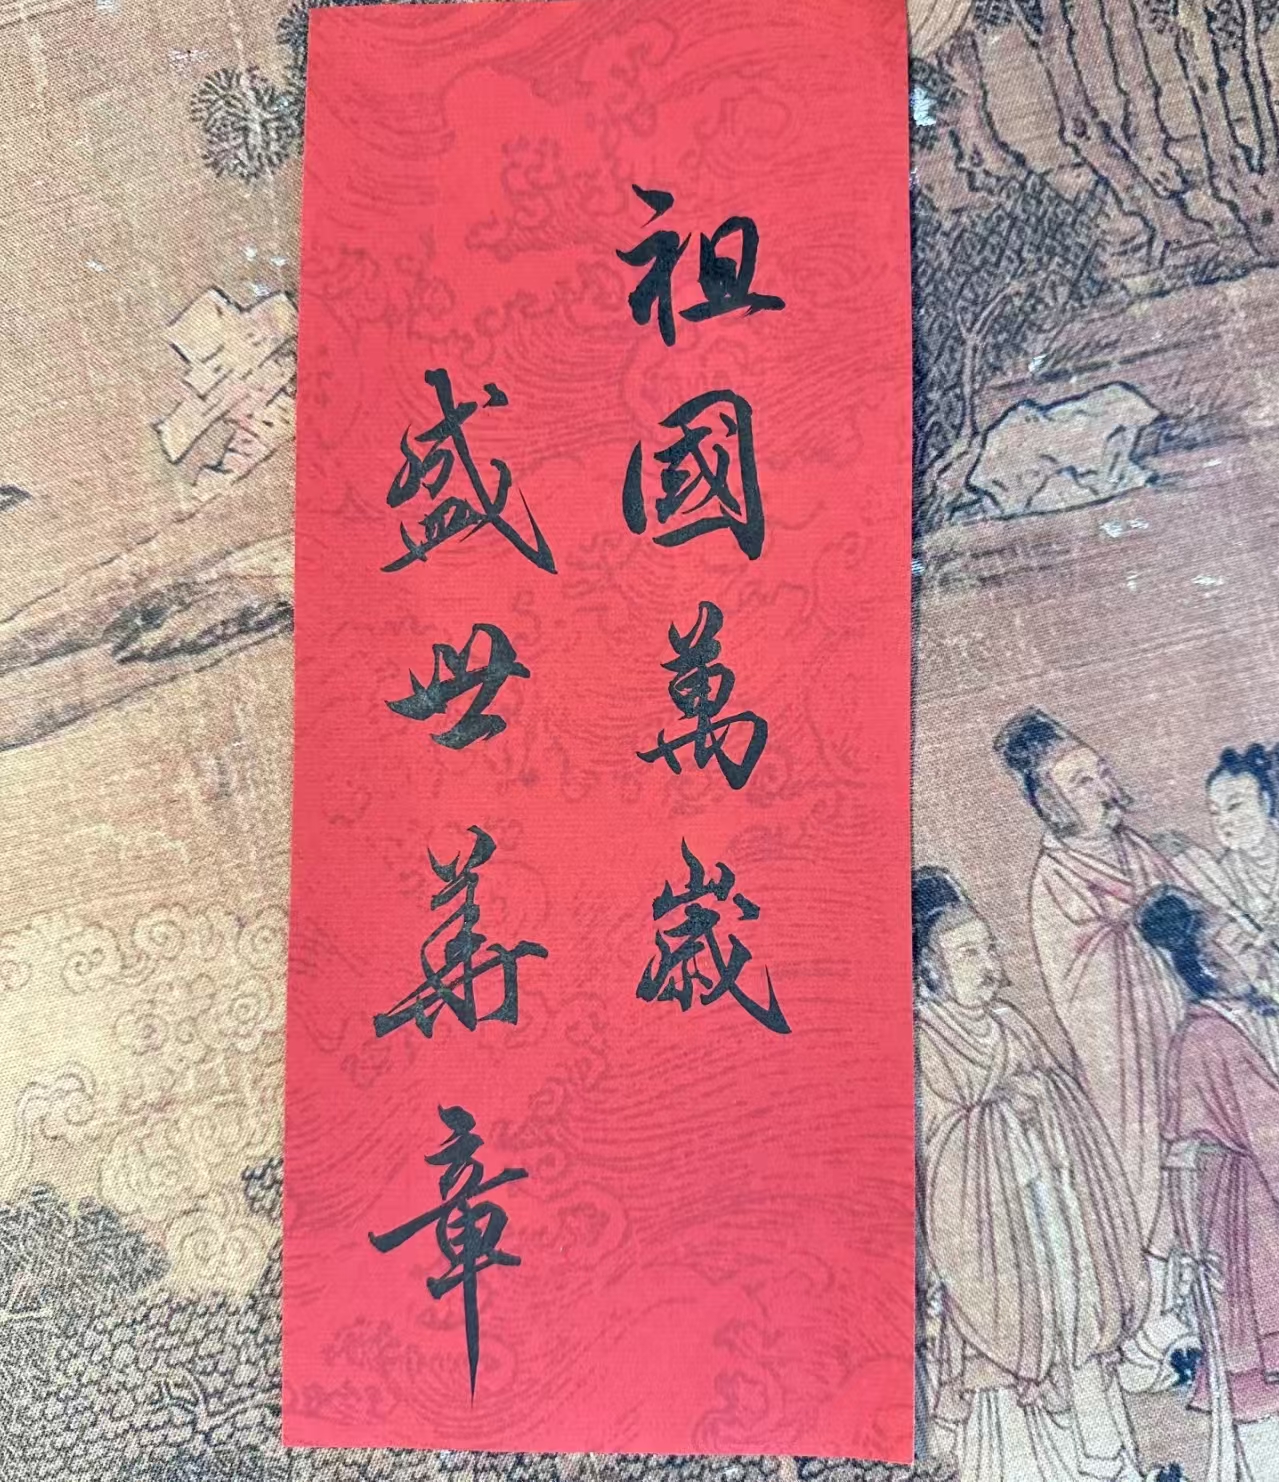 祖國萬歲
盛世華章